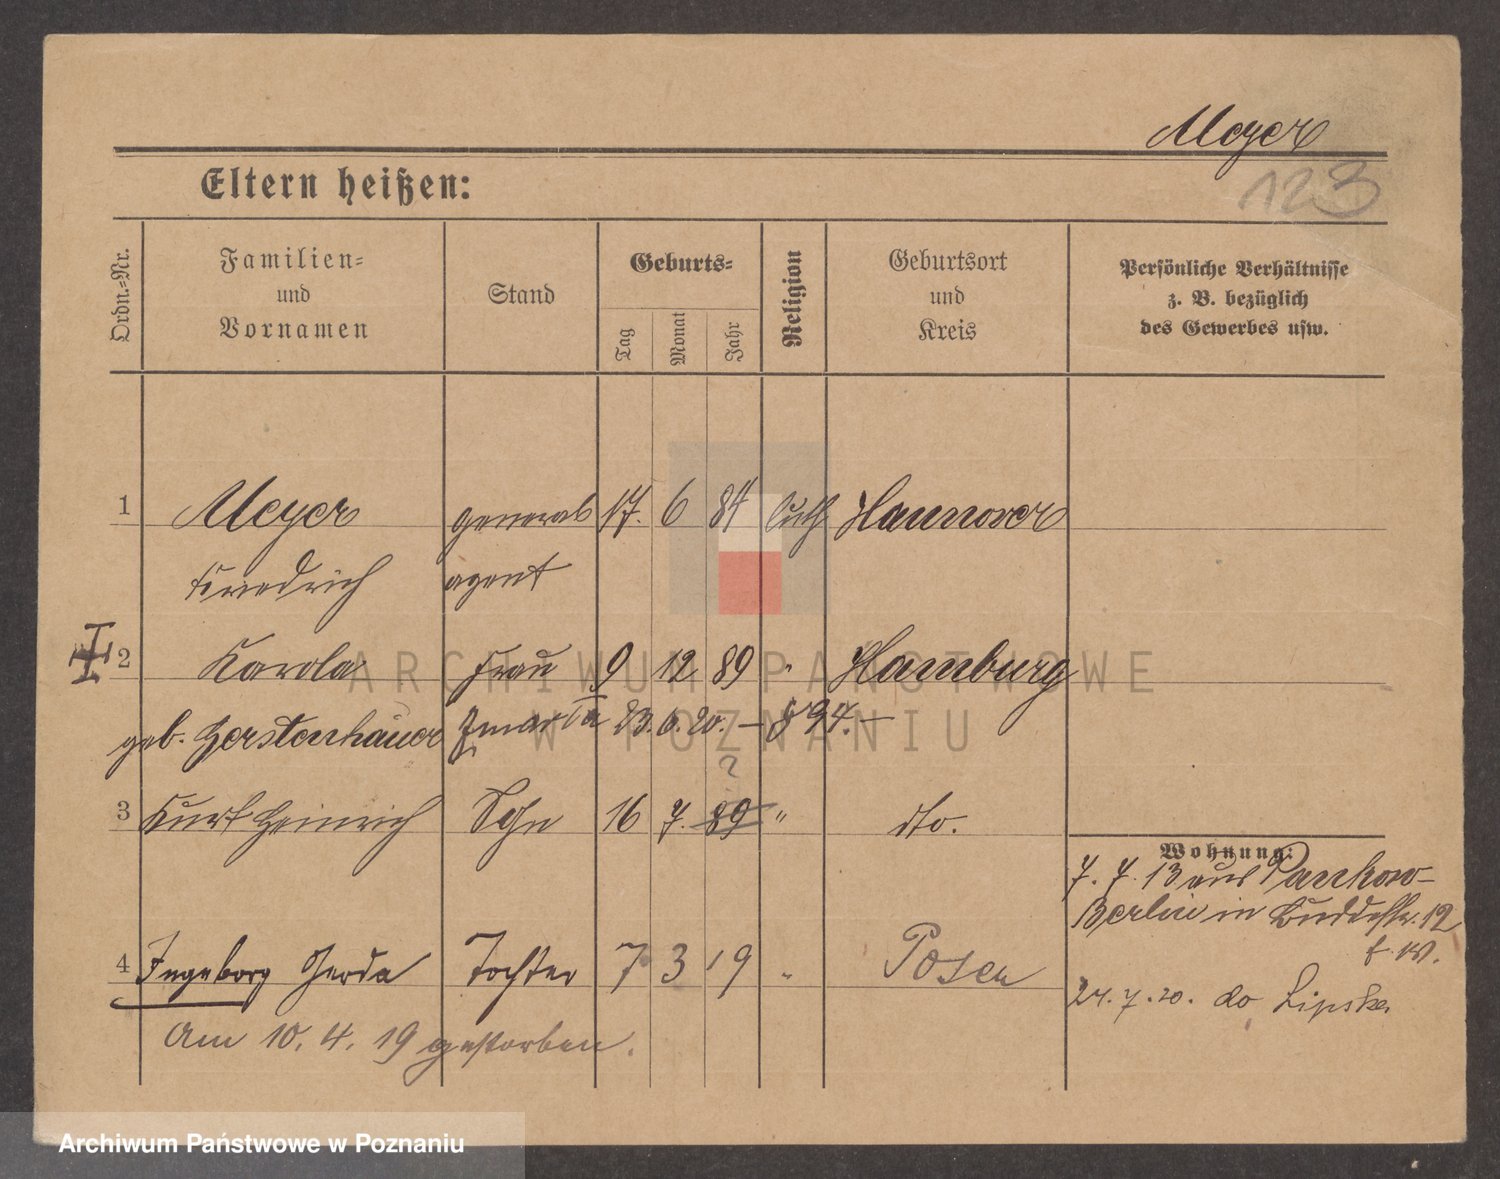 Meyer
123
Eltern heißen:
Ordn.-Nr.
Familien-
und
Vornamen
Stand
Geburts-
Tag
Monat
Jahr
Religion
Geburtsort
und
Kreis
Persönliche Verhältnisse
z. B. bezüglich
des Gewerbes usw.
1 Meyer general 17. 6 84 luth Hannover
Friedrich agent
2 Karola Frau 9 12 89 " Hamburg
geb. Gerstenhauer 23. 6. 20. – § 94. –
?
3 Kurt Heinrich Sohn 16 7. 89 " dto.
Wohnung:
7. 7. 13 aus Pankow-
Berlin in Buddestr. 12
4 Ingeborg Gerda Tochter 7 3 19 " Posen
24. 7. 20. do Lipska
Am 10. 4. 19 gestorben.
ARCHIWUM PAŃSTWOWE
W POZNANIU
Archiwum Państwowe w Poznaniu